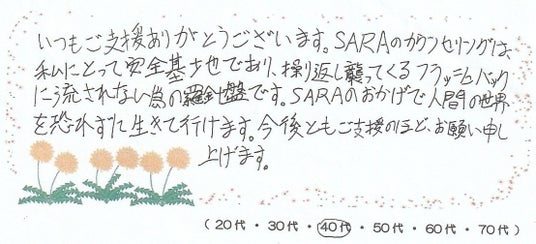 いつもご支援ありがとうございます。SARAのカウンセリングは、
私にとって安全基地であり、繰り返し襲ってくるフラッシュバック
に流されない為の羅針盤です。SARAのおかげで人間の世界
を恐れずに生きて行けます。今後ともご支援のほど、お願い申し
上げます。
（20代・30代・40代・50代・60代・70代）